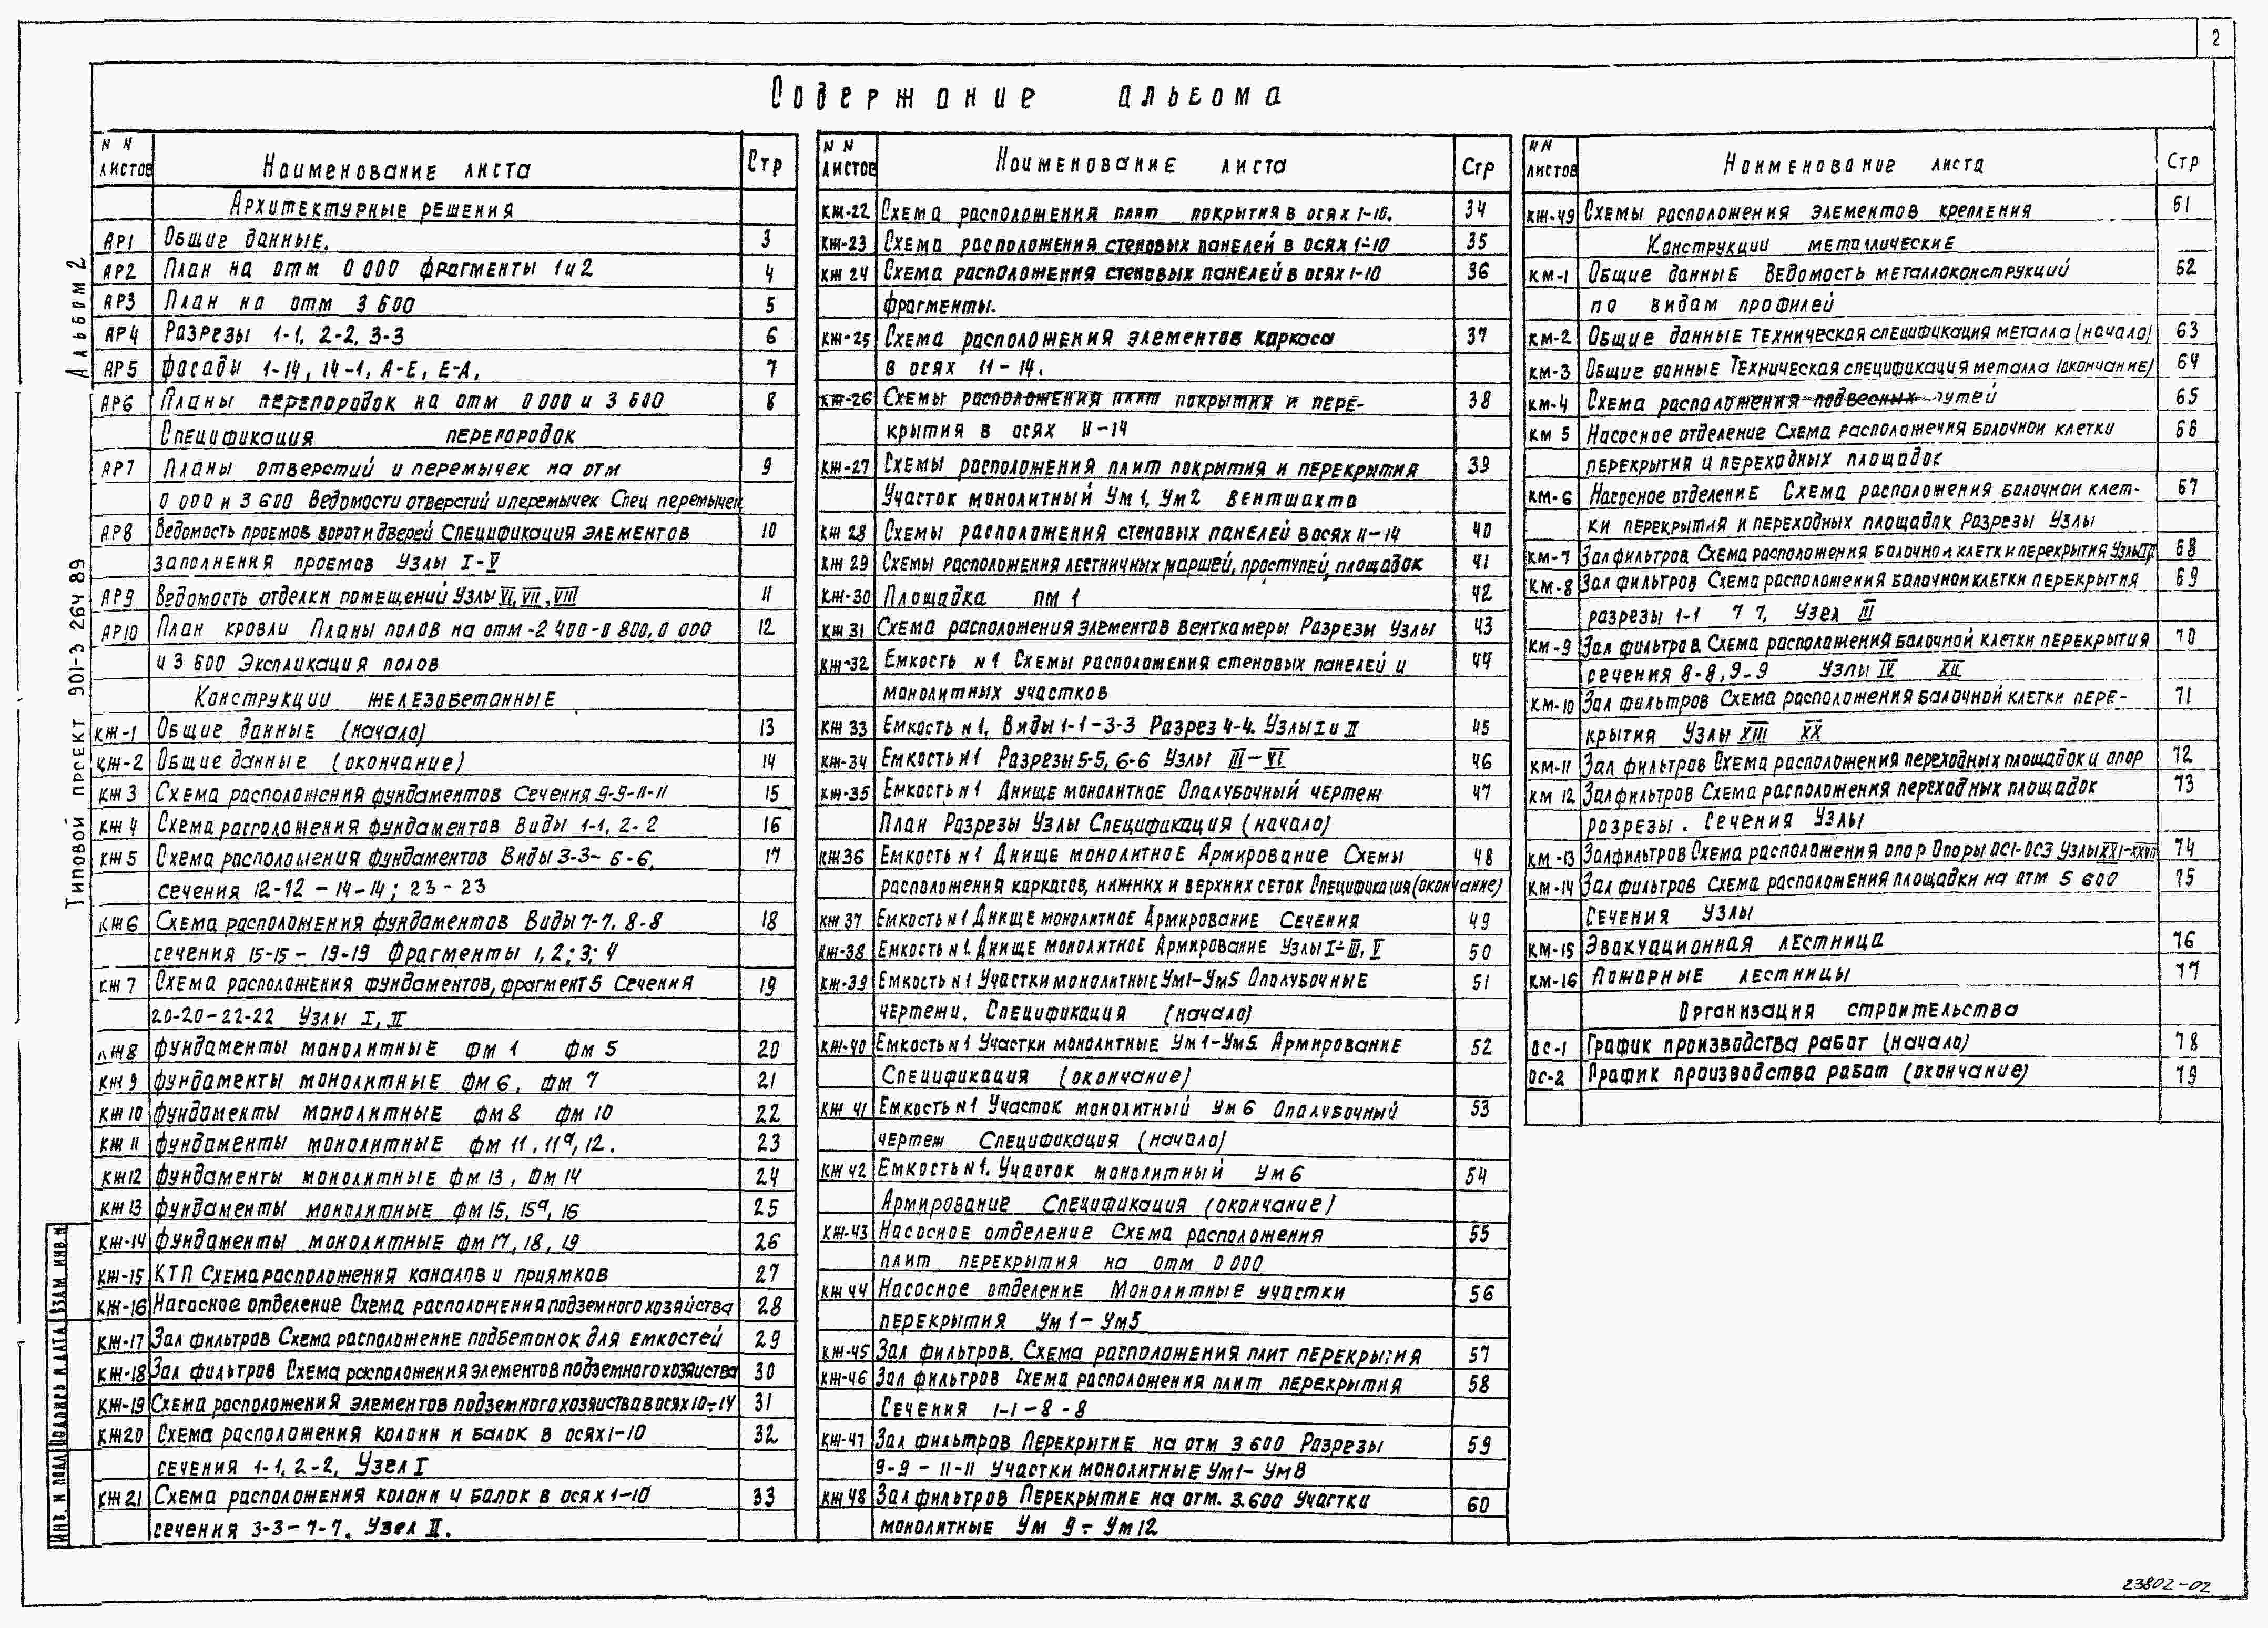 2
Содержание альбома
N N листов Наименование листа Стр
Архитектурные решения
АР1 Общие данные. 3
АР2 План на отм 0 000 фрагменты 1и2 4
АР3 План на отм 3 600 5
АР4 Разрезы 1-1, 2-2, 3-3 6
АР5 Фасады 1-14, 14-1, А-Е, Е-А, 7
АР6 Планы перегородок на отм 0 000 и 3 600 8
Спецификация перегородок
АР7 Планы отверстий и перемычек на отм 9
0 000 и 3 600 Ведомости отверстий и перемычек Спец перемычек
АР8 Ведомость проемов ворот и дверей Спецификация элементов 10
заполнения проемов Узлы I-V
АР9 Ведомость отделки помещений Узлы VI, VII, VIII 11
АР10 План кровли Планы полов на отм -2 400 -0 800, 0 000 12
и 3 600 Экспликация полов
Конструкции железобетонные
КЖ-1 Общие данные (начало) 13
КЖ-2 Общие данные (окончание) 14
КЖ 3 Схема расположения фундаментов Сечения 9-9-11-11 15
КЖ 4 Схема расположения фундаментов Виды 1-1, 2-2 16
КЖ 5 Схема расположения фундаментов Виды 3-3- 6-6, 17
сечения 12-12 - 14-14; 23-23
КЖ6 Схема расположения фундаментов Виды 7-7, 8-8 18
сечения 15-15 - 19-19 Фрагменты 1, 2; 3; 4
КЖ 7 Схема расположения фундаментов, фрагмент 5 Сечения 19
20-20-22-22 Узлы I, II
КЖ8 Фундаменты монолитные Фм 1 Фм 5 20
КЖ 9 Фундаменты монолитные Фм 6, Фм 7 21
КЖ 10 Фундаменты монолитные Фм 8 Фм 10 22
КЖ 11 Фундаменты монолитные Фм 11, 11а, 12. 23
КЖ12 Фундаменты монолитные Фм 13, Фм 14 24
КЖ 13 Фундаменты монолитные Фм 15, 15а, 16 25
КЖ-14 Фундаменты монолитные Фм 17, 18, 19 26
КЖ-15 КТП Схема расположения каналов и приямков 27
КЖ-16 Насосное отделение Схема расположения подземного хозяйства 28
КЖ-17 Зал фильтров Схема расположение подбетонок для емкостей 29
КЖ-18 Зал фильтров Схема расположения элементов подземного хозяйства 30
КЖ-19 Схема расположения элементов подземного хозяйства в осях 10÷14 31
КЖ20 Схема расположения колонн и балок в осях 1-10 32
сечения 1-1, 2-2, Узел I
КЖ 21 Схема расположения колонн и балок в осях 1-10 33
сечения 3-3-7-7. Узел II.
N N листов Наименование листа Стр
КЖ-22 Схема расположения плит покрытия в осях 1-10. 34
КЖ-23 Схема расположения стеновых панелей в осях 1÷10 35
КЖ 24 Схема расположения стеновых панелей в осях 1-10 36
фрагменты.
КЖ-25 Схема расположения элементов каркаса 37
в осях 11-14.
КЖ-26 Схемы расположения плит покрытия и пере- 38
крытия в осях 11-14
КЖ-27 Схемы расположения плит покрытия и перекрытия 39
Участок монолитный Ум 1, Ум 2 Вентшахта
КЖ 28 Схемы расположения стеновых панелей в осях 11-14 40
КЖ 29 Схемы расположения лестничных маршей, проступей, площадок 41
КЖ-30 Площадка пм 1 42
КЖ 31 Схема расположения элементов венткамеры Разрезы Узлы 43
КЖ-32 Емкость N 1 Схемы расположения стеновых панелей и 44
монолитных участков
КЖ 33 Емкость N 1. Виды 1-1-3-3 Разрез 4-4. Узлы I и II 45
КЖ-34 Емкость N 1 Разрезы 5-5, 6-6 Узлы III-VI 46
КЖ-35 Емкость N 1 Днище монолитное Опалубочный чертеж 47
План Разрезы Узлы Спецификация (начало)
КЖ36 Емкость N 1 Днище монолитное Армирование Схемы 48
расположения каркасов, нижних и верхних сеток Спецификация (окончание)
КЖ 37 Емкость N 1 Днище монолитное Армирование Сечения 49
КЖ-38 Емкость N 1. Днище монолитное Армирование Узлы I÷III, V 50
КЖ-39 Емкость N 1 Участки монолитные Ум1-Ум5 Опалубочные 51
чертежи. Спецификация (начало)
КЖ-40 Емкость N 1 Участки монолитные Ум 1-Ум5 Армирование 52
Спецификация (окончание)
КЖ 41 Емкость N 1 Участок монолитный Ум 6 Опалубочный 53
чертеж Спецификация (начало)
КЖ 42 Емкость N 1. Участок монолитный Ум 6 54
Армирование Спецификация (окончание)
КЖ-43 Насосное отделение Схема расположения 55
плит перекрытия на отм 0 000
КЖ 44 Насосное отделение Монолитные участки 56
перекрытия Ум 1-Ум5
КЖ-45 Зал фильтров. Схема расположения плит перекрытия 57
КЖ-46 Зал фильтров Схема расположения плит перекрытия 58
Сечения 1-1-8-8
КЖ-47 Зал фильтров Перекрытие на отм 3 600 Разрезы 59
9-9 - 11-11 Участки монолитные Ум1- Ум8
КЖ 48 Зал фильтров Перекрытие на отм. 3.600 Участки 60
монолитные Ум 9÷Ум12
NN листов Наименование листа Стр
КЖ-49 Схемы расположения элементов крепления 61
Конструкции металлические
КМ-1 Общие данные Ведомость металлоконструкций 62
по видам профилей
КМ-2 Общие данные Техническая спецификация металла (начало) 63
КМ-3 Общие данные Техническая спецификация металла (окончание) 64
КМ-4 Схема расположения подвесных путей 65
КМ 5 Насосное отделение Схема расположения балочной клетки 66
перекрытия и переходных площадок
КМ-6 Насосное отделение Схема расположения балочной клет- 67
ки перекрытия и переходных площадок Разрезы Узлы
КМ-7 Зал фильтров Схема расположения балочной клетки перекрытия Узлы 68
КМ-8 Зал фильтров Схема расположения балочной клетки перекрытия 69
разрезы 1-1 7 7, Узел III
КМ-9 Зал фильтров Схема расположения балочной клетки перекрытия 70
сечения 8-8, 9-9 Узлы IV XII
КМ-10 Зал фильтров Схема расположения балочной клетки пере- 71
крытия Узлы XIII XX
КМ-11 Зал фильтров Схема расположения переходных площадок и опор 72
КМ 12 Зал фильтров Схема расположения переходных площадок 73
разрезы. Сечения Узлы
КМ-13 Зал фильтров Схема расположения опор Опоры ОС1-ОС3 Узлы XXI-XXVII 74
КМ-14 Зал фильтров Схема расположения площадки на отм 5 600 75
Сечения Узлы
КМ-15 Эвакуационная лестница 76
КМ-16 Пожарные лестницы 77
Организация строительства
ОС-1 График производства работ (начало) 78
ОС-2 График производства работ (окончание) 79
Альбом 2
Типовой проект 901-3 264 89
Инв. N подл Подпись и дата Взам инв N
23802-02